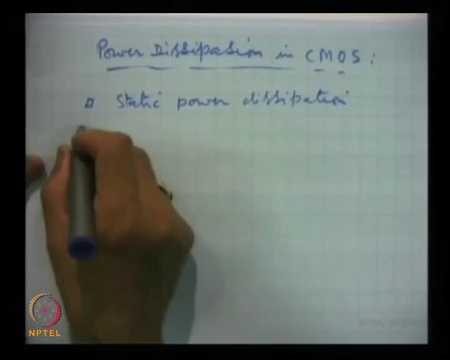 Power Dissipation in CMOS:
Static power dissipation
NPTEL